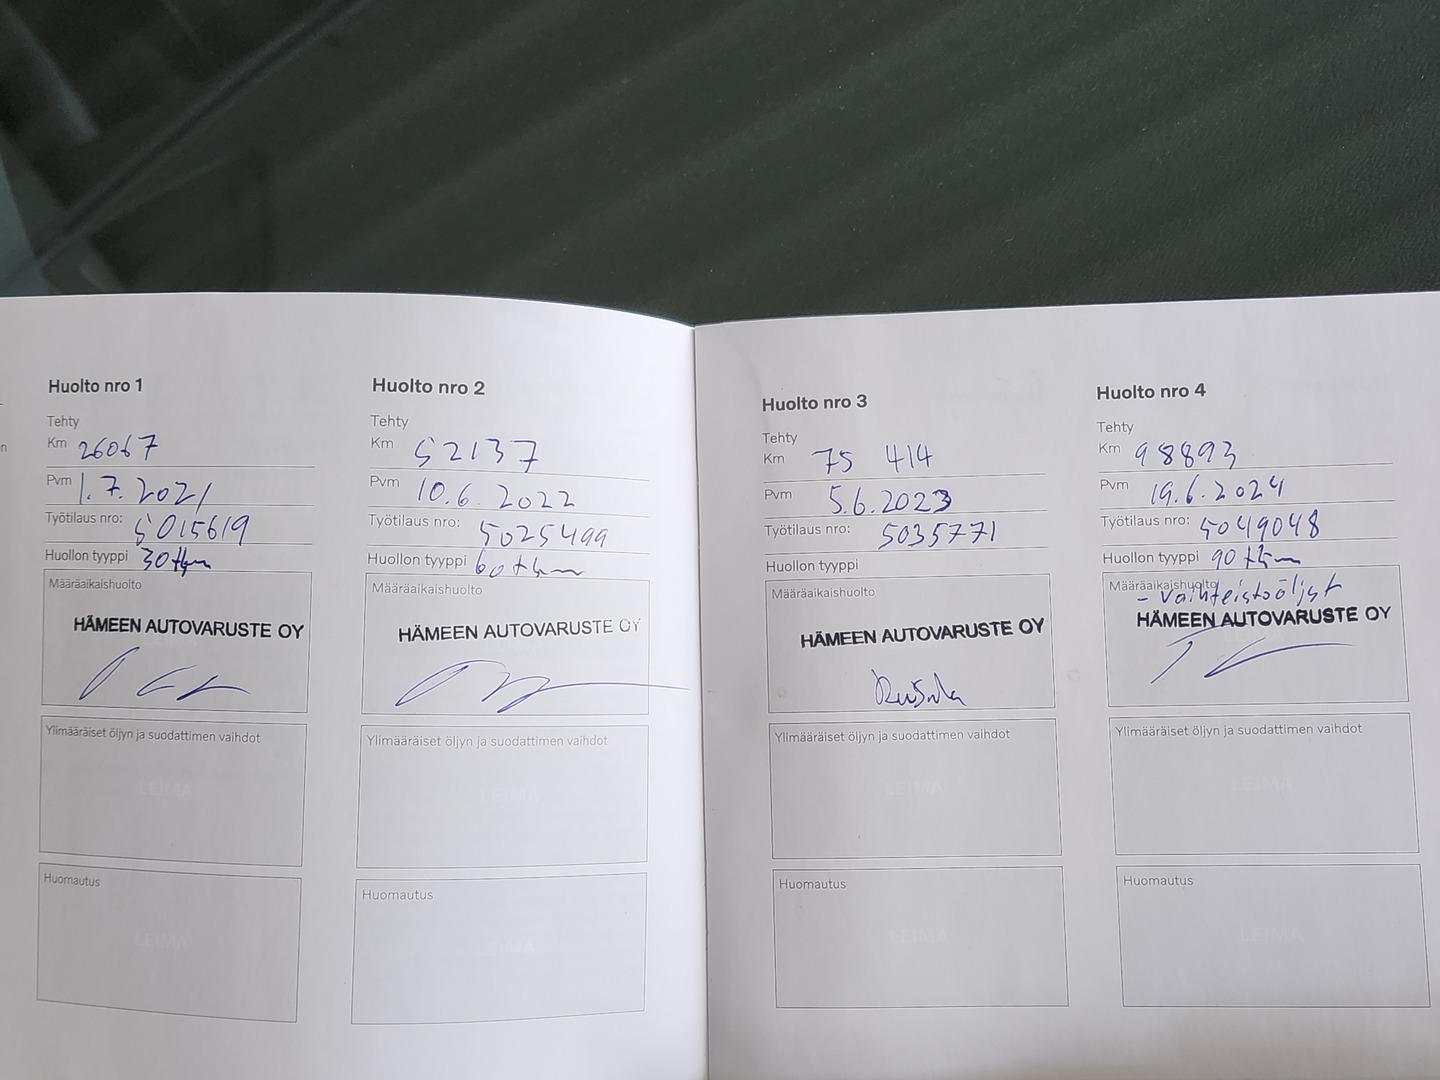 Huolto nro 1
Tehty
Km 26067
Pvm 1.7.2021
Työtilaus nro: 5015619
Huollon tyyppi 30tkm
Määräaikaishuolto
HÄMEEN AUTOVARUSTE OY
Ylimääräiset öljyn ja suodattimen vaihdot
LEIMA
Huomautus
LEIMA
Huolto nro 2
Tehty
Km 52137
Pvm 10.6.2022
Työtilaus nro: 5025499
Huollon tyyppi 60tkm
Määräaikaishuolto
HÄMEEN AUTOVARUSTE OY
Ylimääräiset öljyn ja suodattimen vaihdot
LEIMA
Huomautus
LEIMA
Huolto nro 3
Tehty
Km 75 414
Pvm 5.6.2023
Työtilaus nro: 5035771
Huollon tyyppi
Määräaikaishuolto
HÄMEEN AUTOVARUSTE OY
Ylimääräiset öljyn ja suodattimen vaihdot
LEIMA
Huomautus
LEIMA
Huolto nro 4
Tehty
Km 98893
Pvm 19.6.2024
Työtilaus nro: 5049048
Huollon tyyppi 90tkm
Määräaikaishuolto
- vaihteistoöljyt
HÄMEEN AUTOVARUSTE OY
Ylimääräiset öljyn ja suodattimen vaihdot
LEIMA
Huomautus
LEIMA